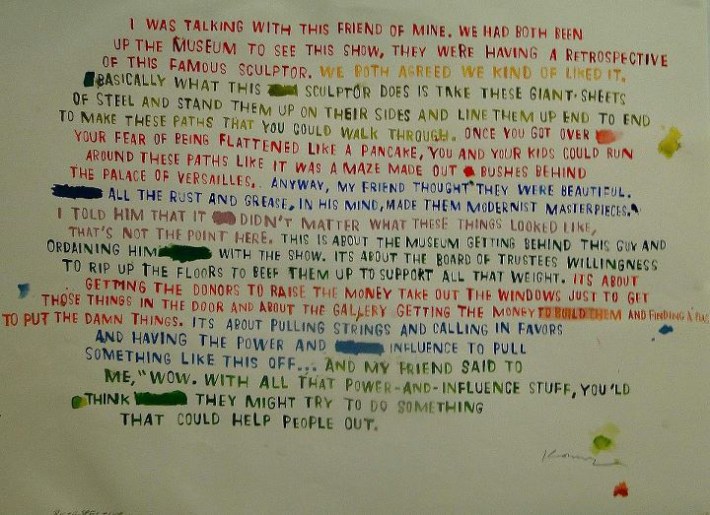 I WAS TALKING WITH THIS FRIEND OF MINE. WE HAD BOTH BEEN
UP THE MUSEUM TO SEE THIS SHOW, THEY WERE HAVING A RETROSPECTIVE
OF THIS FAMOUS SCULPTOR. WE BOTH AGREED WE KIND OF LIKED IT.
BASICALLY WHAT THIS SCULPTOR DOES IS TAKE THESE GIANT SHEETS
OF STEEL AND STAND THEM UP ON THEIR SIDES AND LINE THEM UP END TO END
TO MAKE THESE PATHS THAT YOU COULD WALK THROUGH. ONCE YOU GOT OVER
YOUR FEAR OF BEING FLATTENED LIKE A PANCAKE, YOU AND YOUR KIDS COULD RUN
AROUND THESE PATHS LIKE IT WAS A MAZE MADE OUT BUSHES BEHIND
THE PALACE OF VERSAILLES.. ANYWAY, MY FRIEND THOUGHT THEY WERE BEAUTIFUL.
ALL THE RUST AND GREASE, IN HIS MIND, MADE THEM MODERNIST MASTERPIECES.
I TOLD HIM THAT IT DIDN'T MATTER WHAT THESE THINGS LOOKED LIKE,
THAT'S NOT THE POINT HERE. THIS IS ABOUT THE MUSEUM GETTING BEHIND THIS GUY AND
ORDAINING HIM WITH THE SHOW. ITS ABOUT THE BOARD OF TRUSTEES WILLINGNESS
TO RIP UP THE FLOORS TO BEEF THEM UP TO SUPPORT ALL THAT WEIGHT. ITS ABOUT
GETTING THE DONORS TO RAISE THE MONEY TAKE OUT THE WINDOWS JUST TO GET
THOSE THINGS IN THE DOOR AND ABOUT THE GALLERY GETTING THE MONEY TO BUILD THEM AND FINDING A
TO PUT THE DAMN THINGS. ITS ABOUT PULLING STRINGS AND CALLING IN FAVORS
AND HAVING THE POWER AND INFLUENCE TO PULL
SOMETHING LIKE THIS OFF... AND MY FRIEND SAID TO
ME, "WOW. WITH ALL THAT POWER-AND-INFLUENCE STUFF, YOU'LD
THINK THEY MIGHT TRY TO DO SOMETHING
THAT COULD HELP PEOPLE OUT.